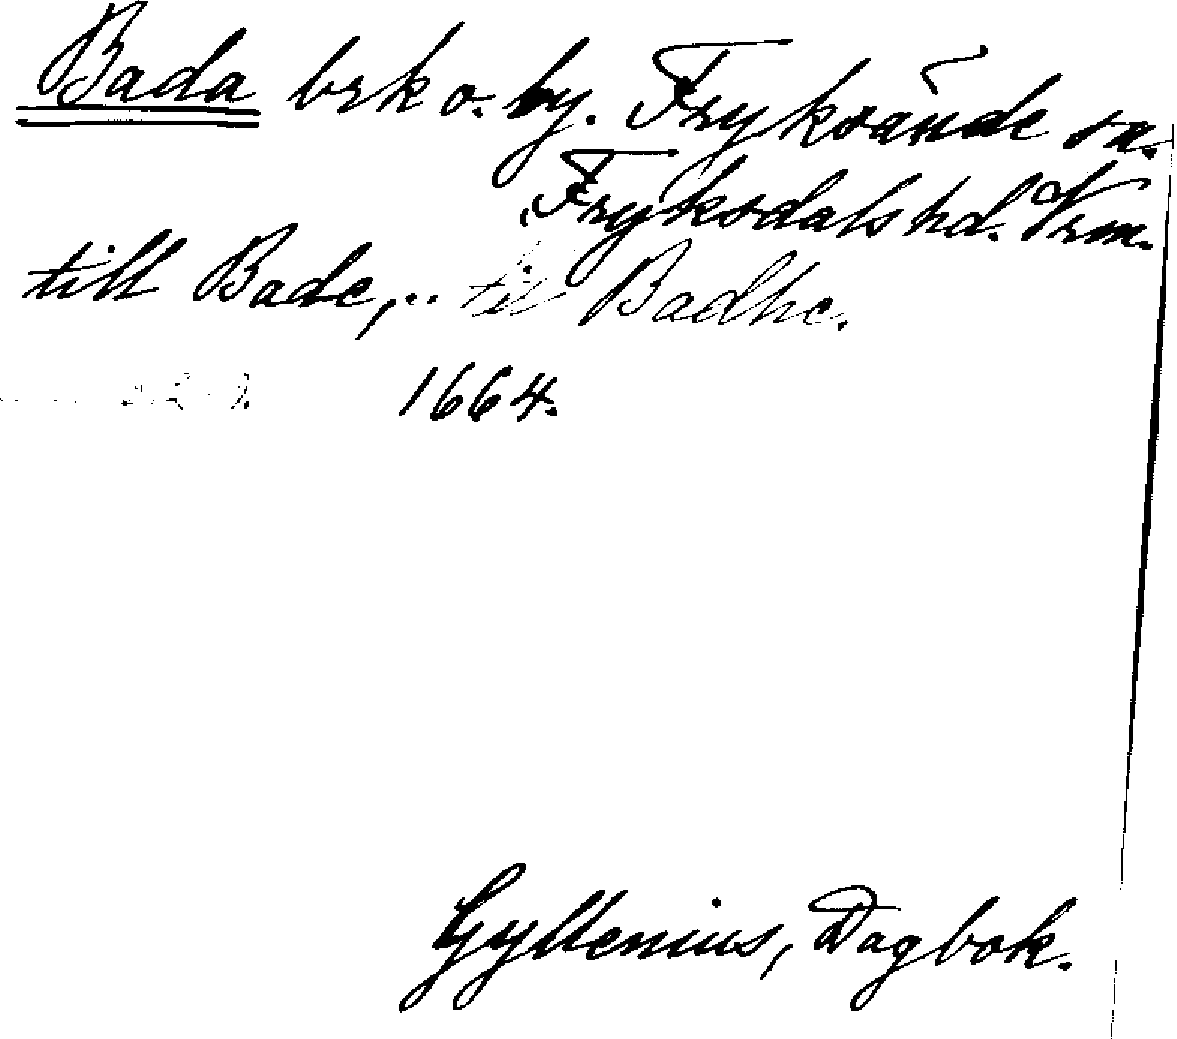 Bada brk o. by. Fryksände sn.
Fryksdals hd. Vrm.
till Bade,.. til Badhe.
1664.
Gyllenius, Dagbok.